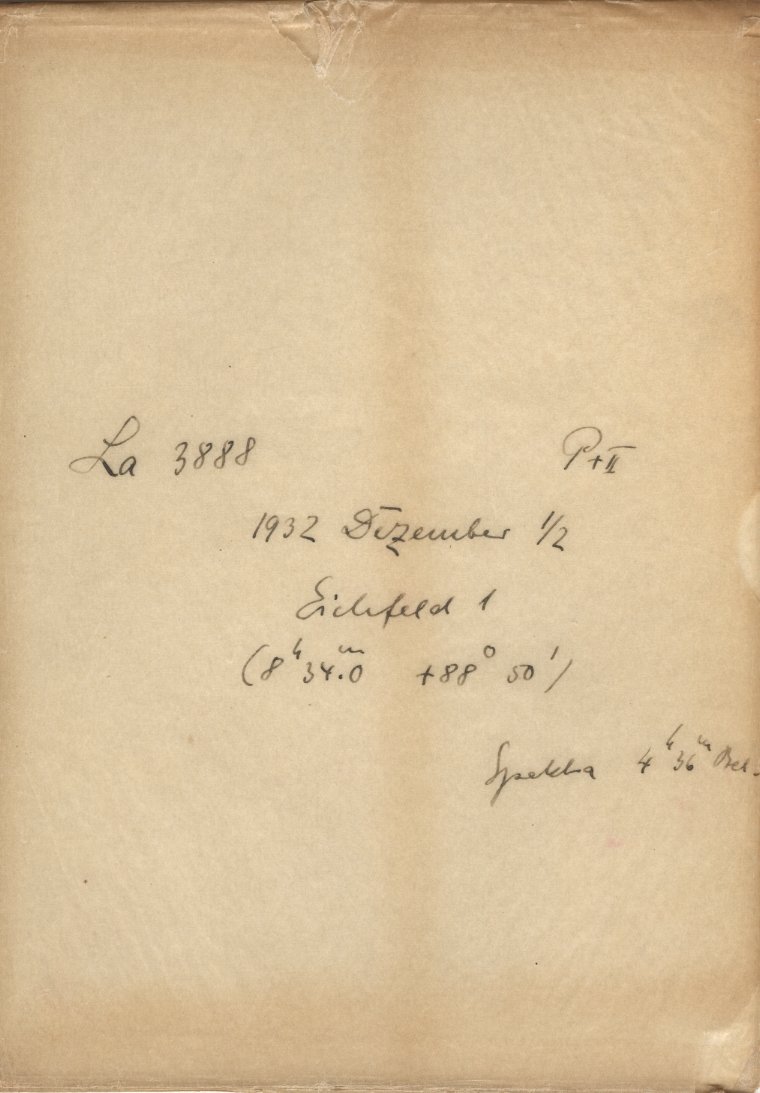 La 3888 P+II
1932 Dezember 1/2
Eichfeld 1
(8h 34m.0 +88° 50')
Spektra 4h 36m Bel.